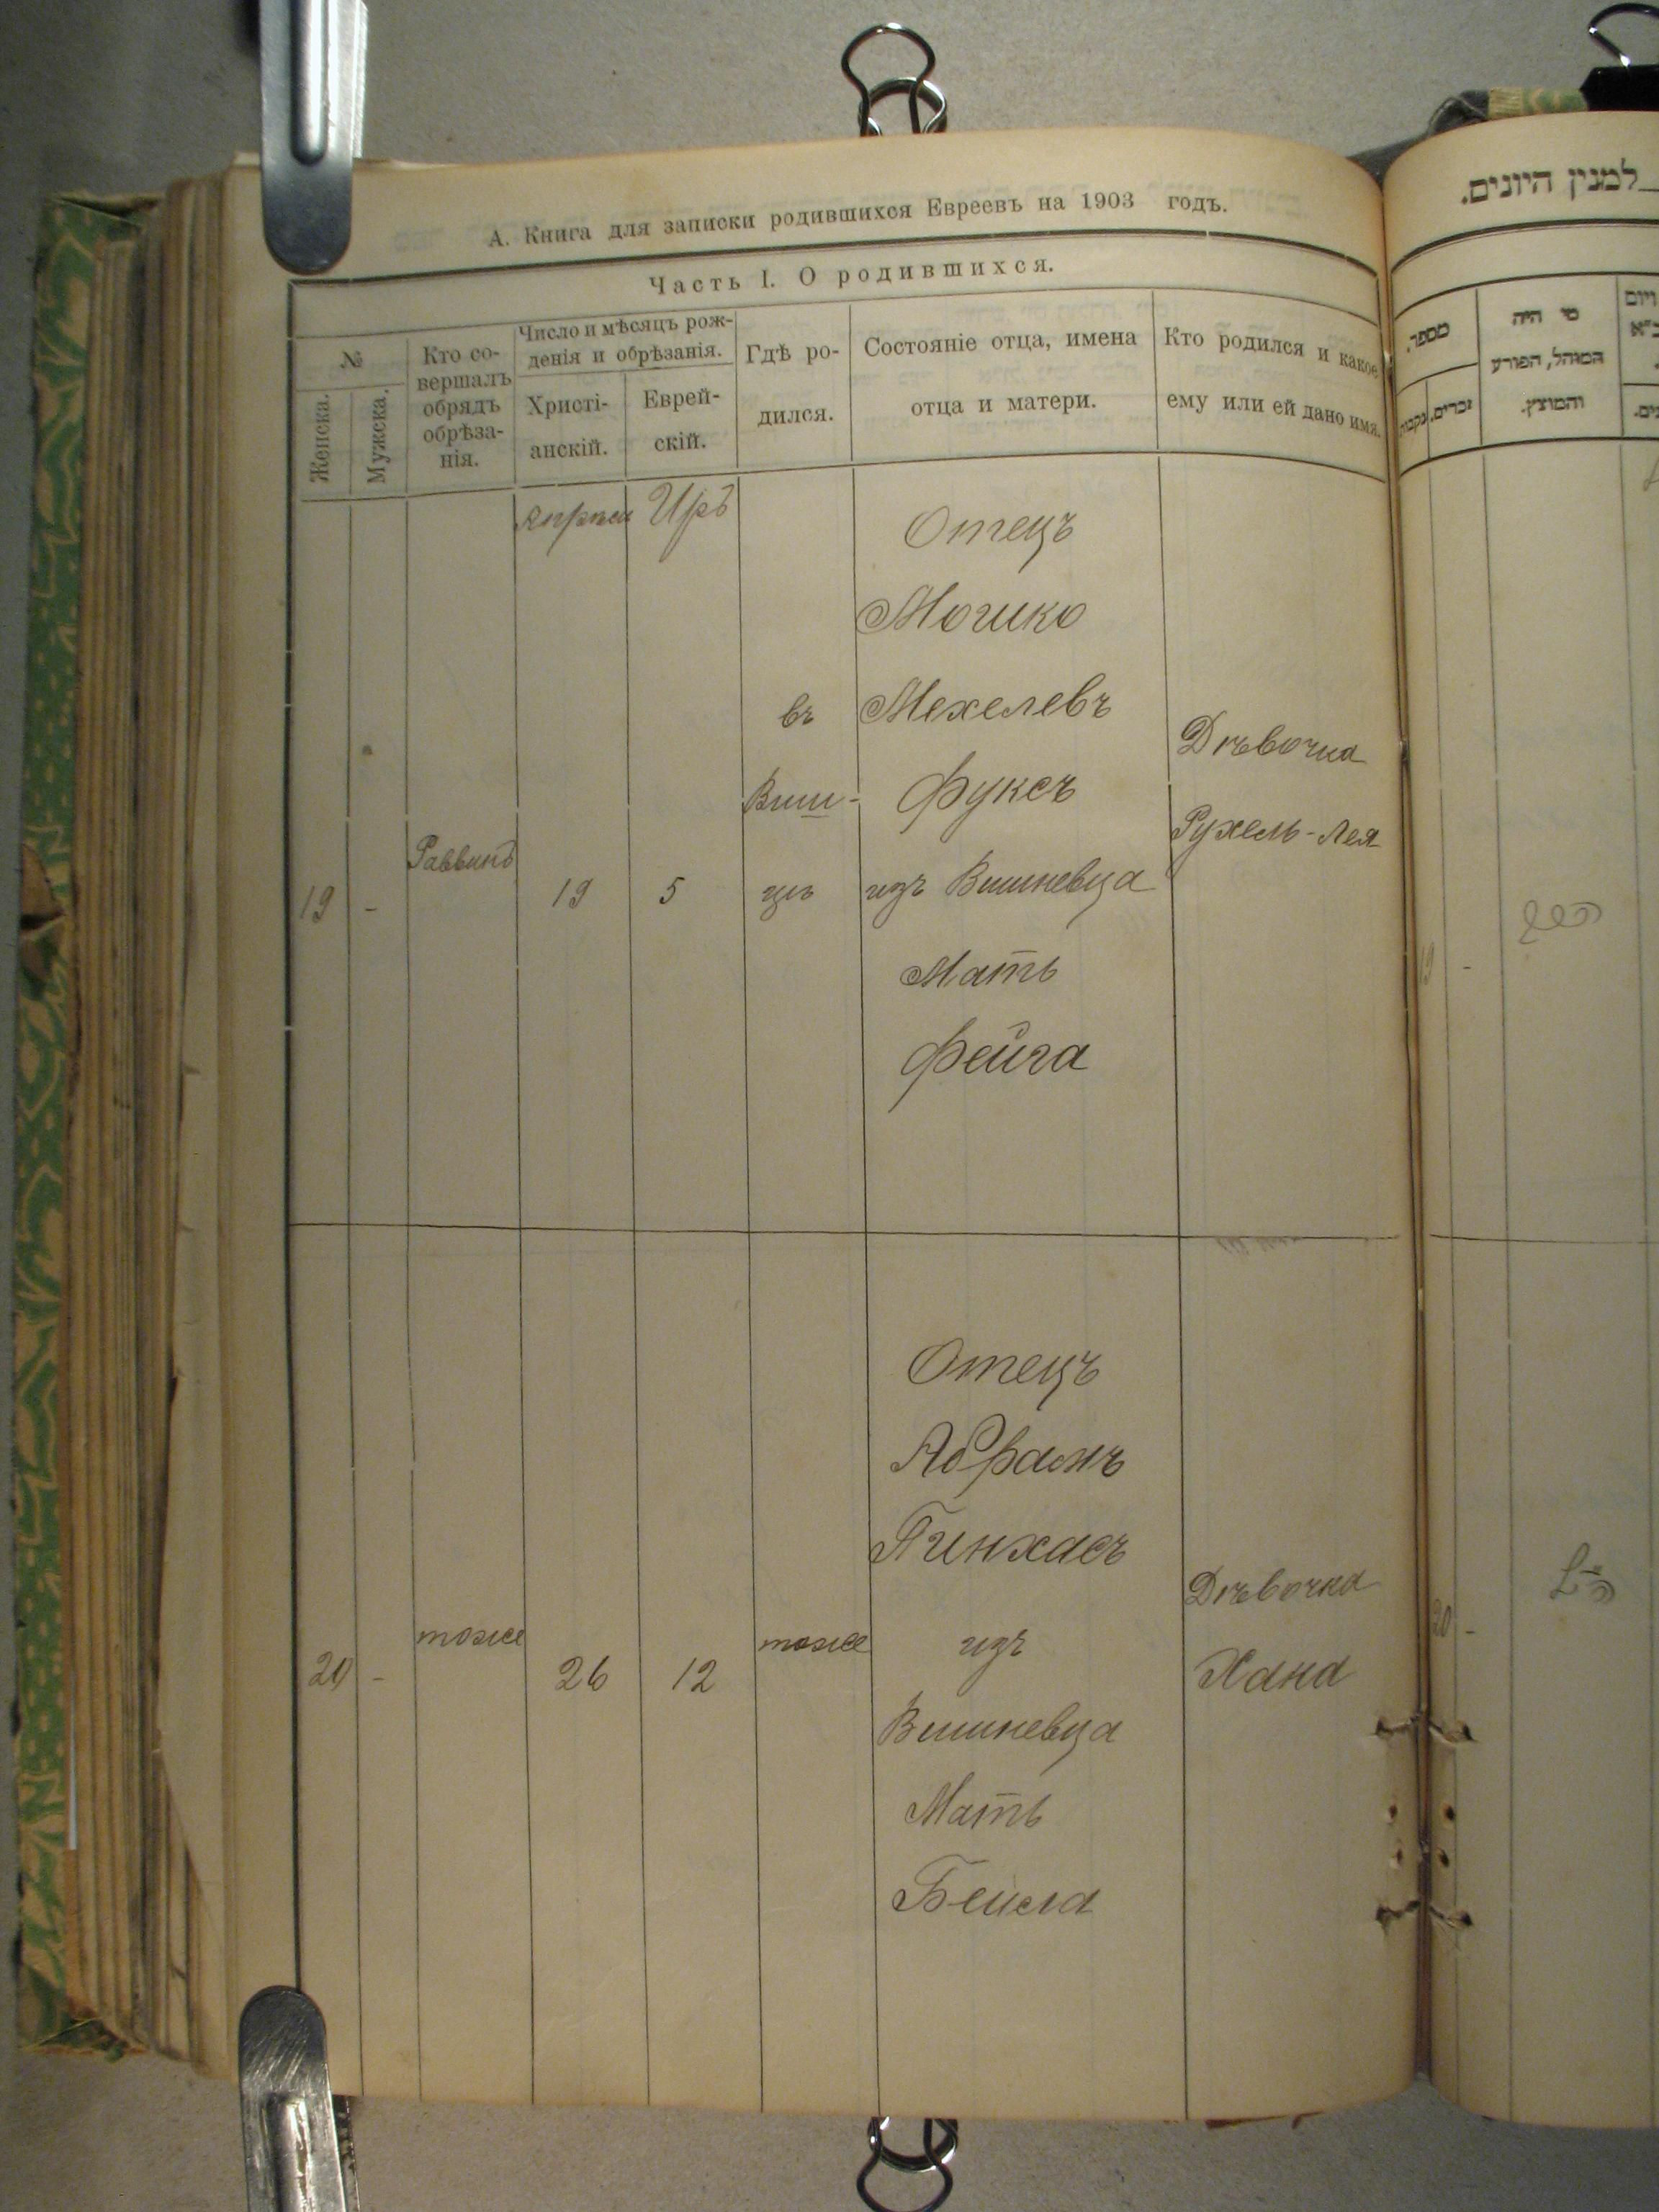 А. Книга для записки родившихся Евреевъ на 1903 годъ.
Часть I. О родившихся.
№
Женска.
Мужска.
Кто со-
вершалъ
обрядъ
обрѣза-
нія.
Число и мѣсяцъ рож-
денія и обрѣзанія.
Христі-
анскій.
Еврей-
скій.
Гдѣ ро-
дился.
Состояніе отца, имена
отца и матери.
Кто родился и какое
ему или ей дано имя.
19
-
Раввинъ
Апрѣля
19
Иръ
5
въ
Виш-
цѣ
Отецъ
Мошко
Мехелевъ
Фуксъ
изъ Вишневца
Мать
Фейга
Дѣвочка
Рухель-Лея
20
-
тоже
26
12
тоже
Отецъ
Абрамъ
Пинхасъ
изъ
Вишневца
Мать
Бейла
Дѣвочка
Хана
למנין היונים.
מספר.
זכרים.
נקבות
מי היה
המוהל, הפורע
והמוצץ.
ויום
19 -
20 -